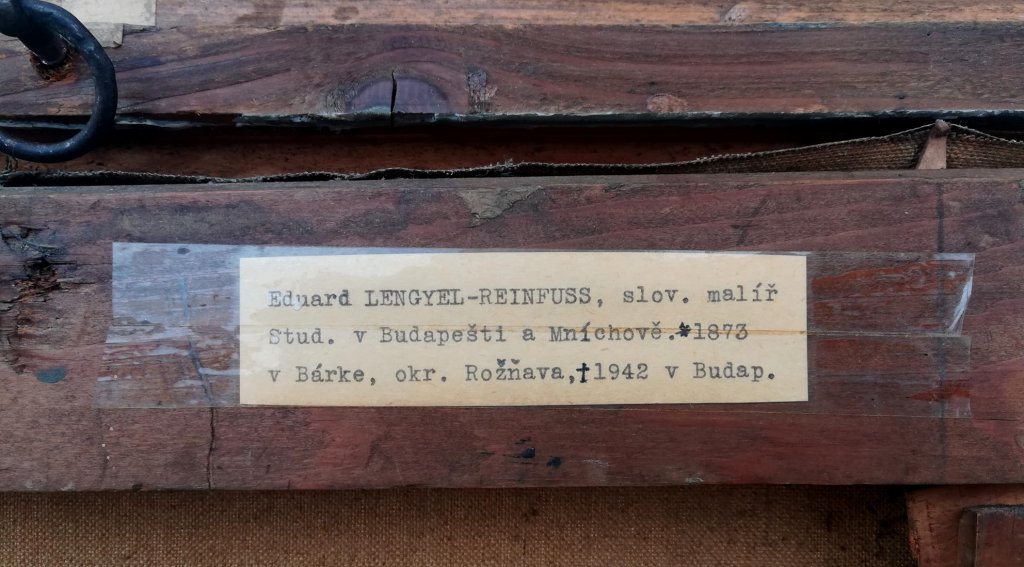 Eduard LENGYEL-REINFUSS, slov. malíř
Stud. v Budapešti a Mníchově.*1873
v Bárke, okr. Rožňava,†1942 v Budap.